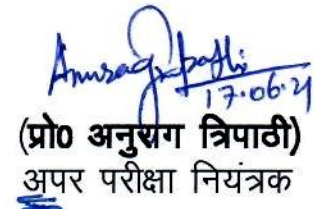 Anurag Tripathi
17.06.21
(प्रो0 अनुराग त्रिपाठी)
अपर परीक्षा नियंत्रक